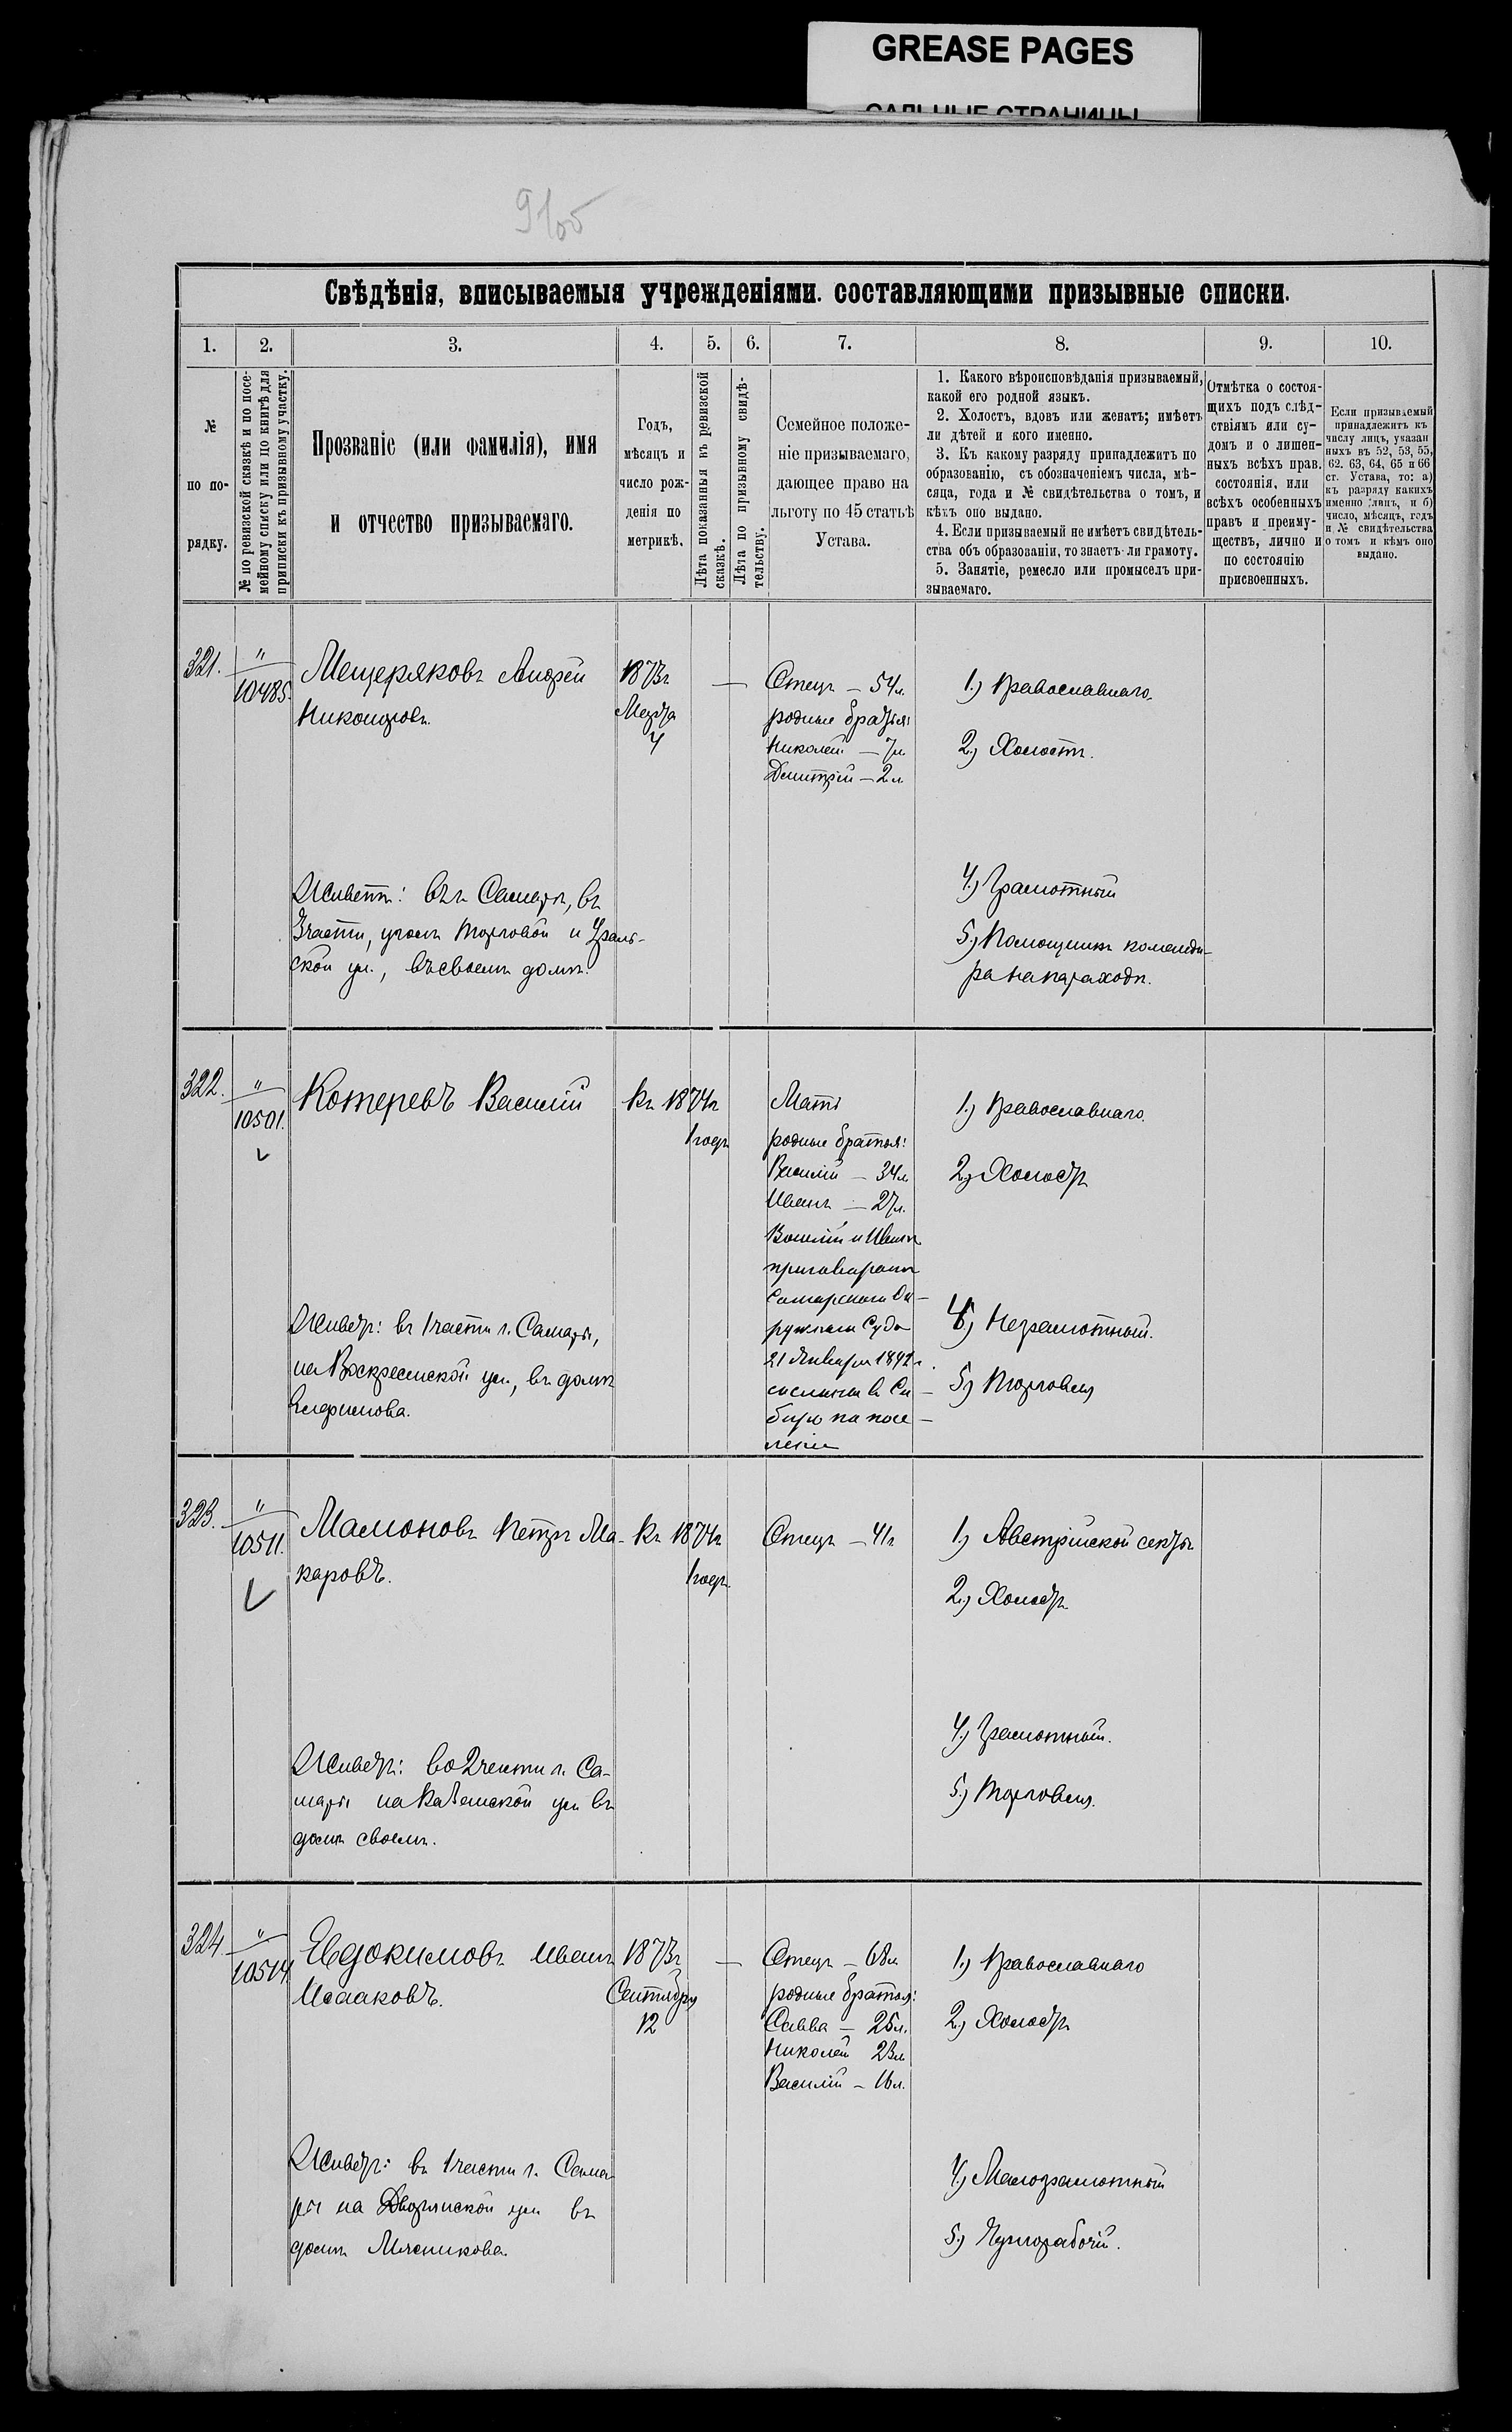 GREASE PAGES
САЛЬНЫЕ СТРАНИЦЫ
91об
Свѣдѣнія, вписываемыя учрежденіями. составляющими призывные списки.
1. 2. 3. 4. 5. 6. 7. 8. 9. 10.
№
по по-
рядку.
№ по ревизской сказкѣ и по посе-
мейному списку или по книгѣ для
приписки къ призывному участку.
Прозваніе (или фамилія), имя
и отчество призываемаго.
Годъ,
мѣсяцъ и
число рож-
денія по
метрикѣ.
Лѣта показанныя въ ревизской
сказкѣ.
Лѣта по призывному свидѣ-
тельству.
Семейное положе-
ніе призываемаго,
дающее право на
льготу по 45 статьѣ
Устава.
1. Какого вѣроисповѣданія призываемый,
какой его родной языкъ.
2. Холостъ, вдовъ или женатъ; имѣетъ
ли дѣтей и кого именно.
3. Къ какому разряду принадлежитъ по
образованію, съ обозначеніемъ числа, мѣ-
сяца, года и № свидѣтельства о томъ, и
кѣмъ оно выдано.
4. Если призываемый не имѣетъ свидѣтель-
ства объ образованіи, то знаетъ ли грамоту.
5. Занятіе, ремесло или промыселъ при-
зываемаго.
Отмѣтка о состоя-
щихъ подъ слѣд-
ствіямъ или су-
домъ и о лишен-
ныхъ всѣхъ прав.
состоянія, или
всѣхъ особенныхъ
правъ и преиму-
ществъ, лично и
по состоянію
присвоенныхъ.
Если призываемый
принадлежитъ къ
числу лицъ, указан
ныхъ въ 52, 53, 55,
62. 63, 64, 65 и 66
ст. Устава, то: а)
къ разряду какихъ
именно лицъ, и б)
число, мѣсяцъ, годъ
и № свидѣтельства
о томъ и кѣмъ оно
выдано.
321.
"
10485.
Мещеряковъ Андрей
Никоноровъ.
1873г
Марта
4
—
Отецъ — 54л.
родные братья:
Николай — 7л.
Дмитрій — 2л.
1.) Православнаго.
2.) Холостъ.
4.) Грамотный
5.) Помощникъ команди-
ра на пароходѣ.
Живетъ: въ г. Самарѣ, въ
3 части, уголъ Торговой и Ураль-
ской ул., въ своемъ домѣ.
322.
"
10501.
Котеревъ Василій
Къ 1874г
1 годъ
Мать
родные братья:
Василій — 34л
Иванъ — 27л.
Василій и Иванъ
приговоромъ
Самарскаго Ок-
ружнаго Суда
21 Января 1892 г.
сосланы въ Си-
бирь на посе-
леніе
1.) Православнаго.
2.) Холостъ
4.) Неграмотный.
5.) Торговля
Живетъ: въ 1 части г. Самары,
на Воскресенской ул., въ домѣ
Елфимова.
323.
"
10511.
Мамоновъ Петръ Ма-
каровъ.
Къ 1874г
1 годъ.
Отецъ — 41г
1.) Австрійской секты
2.) Холостъ
4.) Грамотный.
5.) Торговля.
Живетъ: во 2 части г. Са-
мары на Казанской ул въ
домѣ своемъ.
324.
"
10514
Евдокимовъ Иванъ
Исааковъ.
1873г
Сентября
12
—
Отецъ — 68л
родные братья:
Савва — 25л.
Николай 23л
Василій — 16л.
1.) Православнаго
2.) Холостъ
4.) Малограмотный
5.) Чернорабочій.
Живетъ: въ 1 части г. Сама-
ры на Дворянской ул въ
домѣ Мясникова.